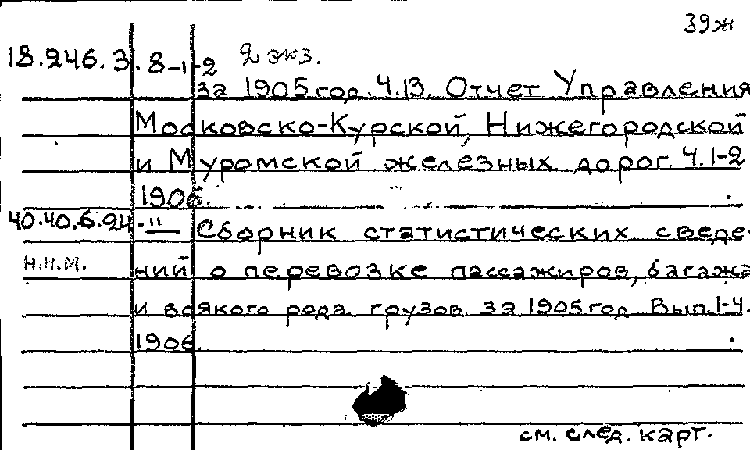 39ж
18.246.3.8-1-2 2 экз.
за 1905 год. Ч.13. Отчет Управления
Московско-Курской, Нижегородской
и Муромской железных дорог. Ч.1-2
1906.
40.40.6.24 -"- Сборник статистических сведе-
Н.Н.М. ний о перевозке пассажиров, багажа
и всякого рода грузов за 1905 год. Вып.1-4.
1906.
см. след. карт.